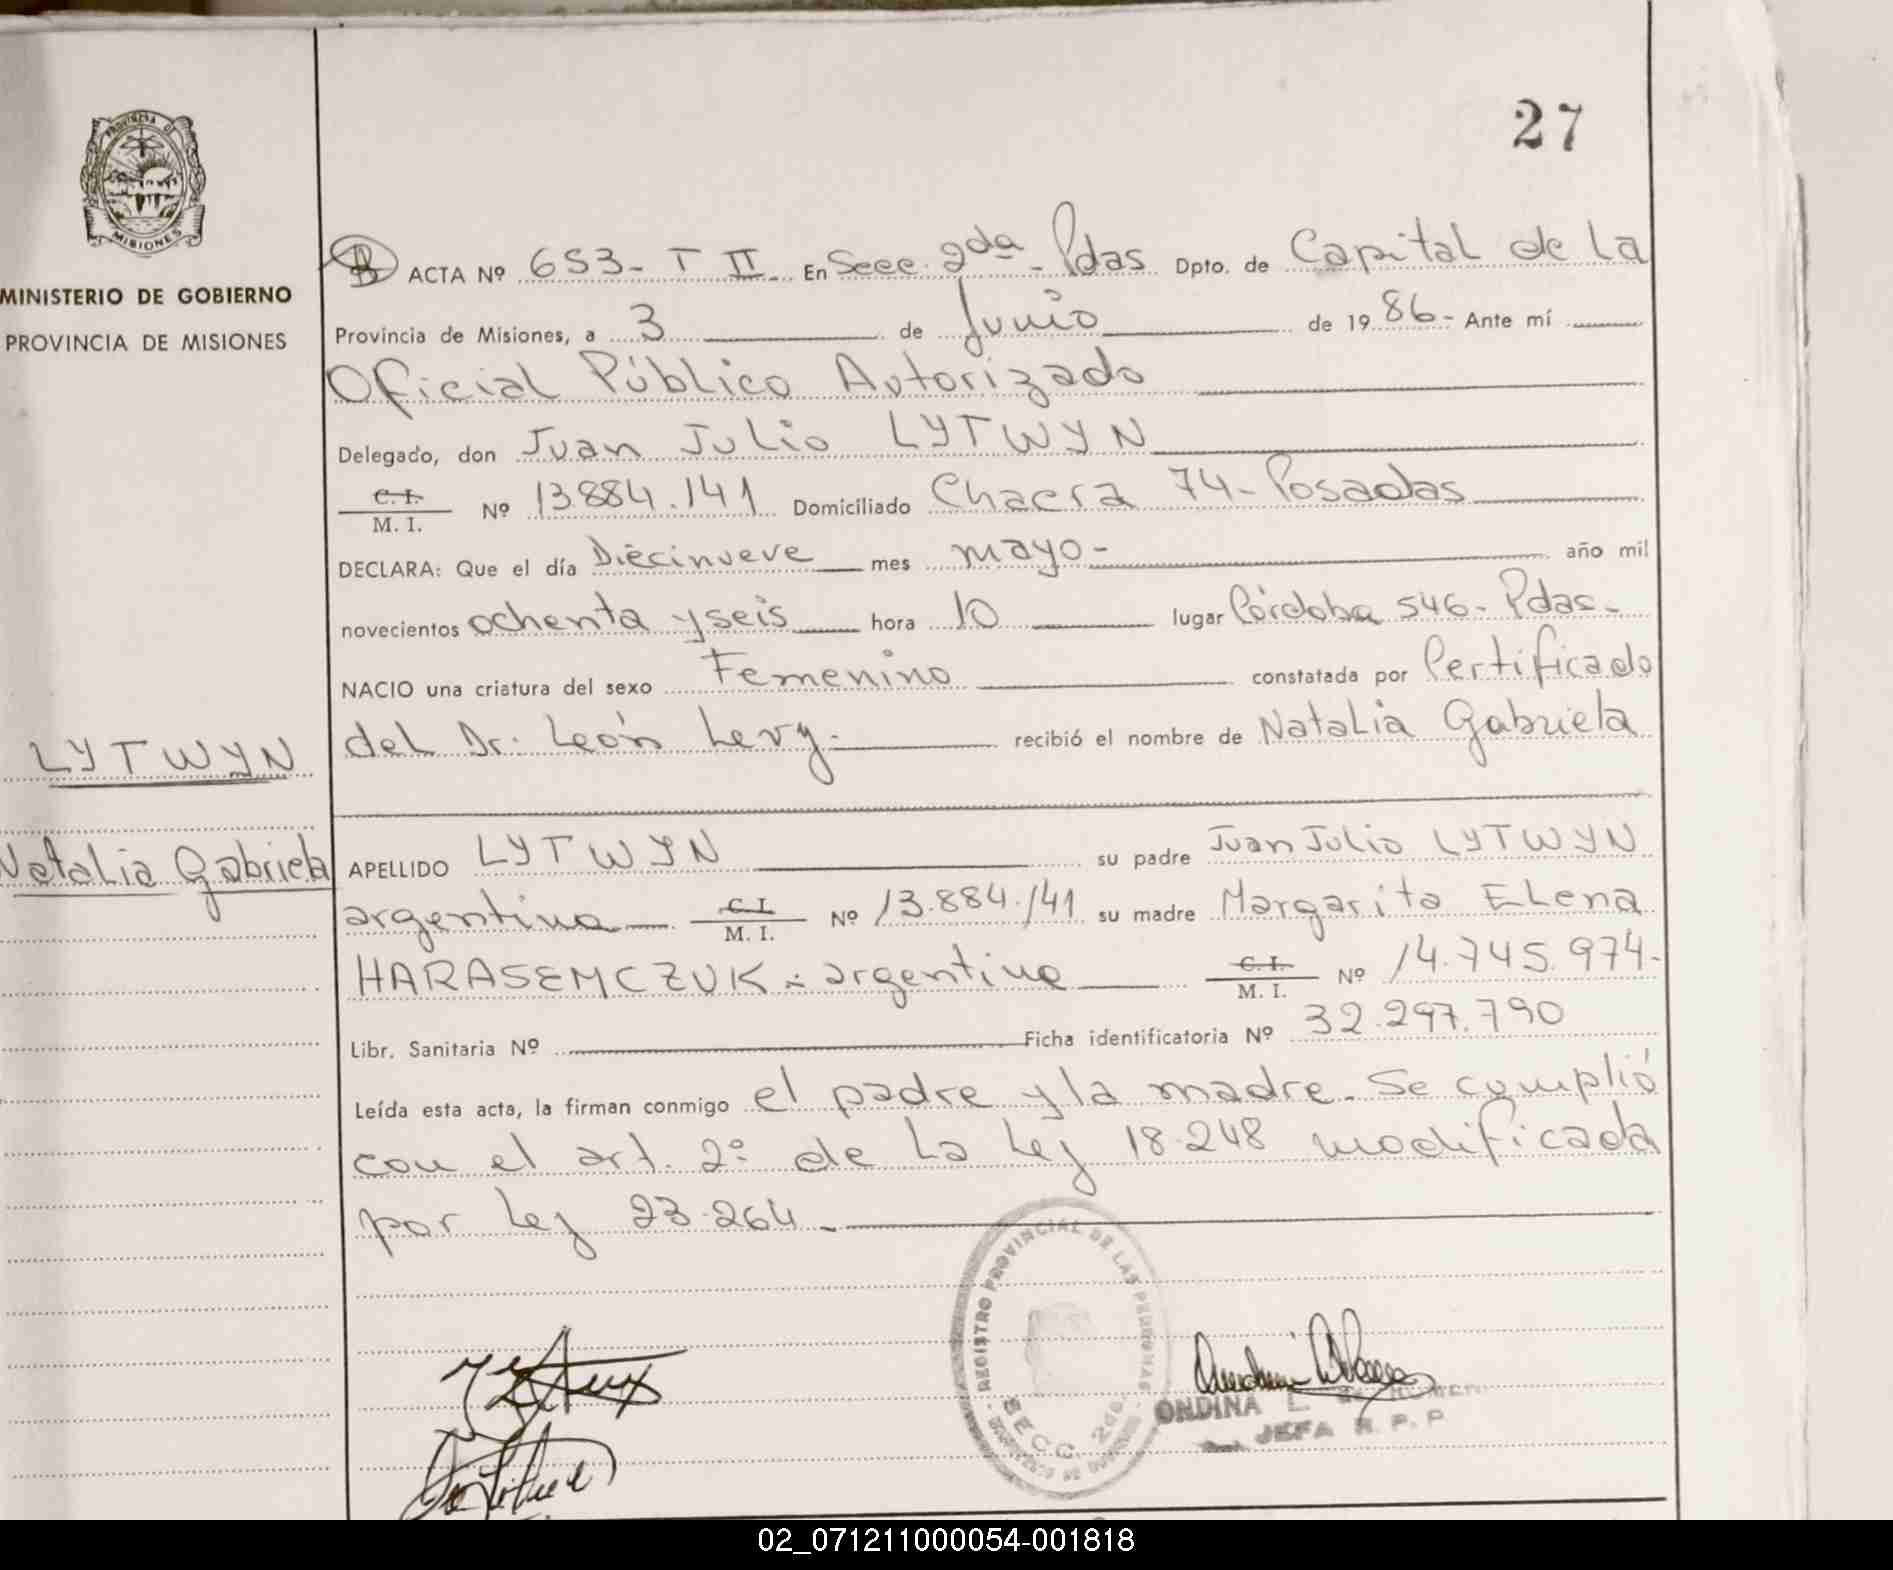 27
PROVINCIA DE
MISIONES
MINISTERIO DE GOBIERNO
PROVINCIA DE MISIONES
LYTWYN
Natalia Gabriela
B ACTA Nº 653- T II En Secc. 2da - Pdas Dpto. de Capital de La
Provincia de Misiones, a 3 de Junio de 1986- Ante mí
Oficial Público Autorizado
Delegado, don Juan Julio LYTWYN
C. I.
M. I. Nº 13.884.141 Domiciliado Chacra 74- Posadas
DECLARA: Que el día Diecinueve mes mayo- año mil
novecientos ochenta y seis hora 10 lugar Córdoba 546- Pdas-
NACIO una criatura del sexo Femenino constatada por Certificado
del Dr. León Levy- recibió el nombre de Natalia Gabriela
APELLIDO LYTWYN su padre Juan Julio LYTWYN
argentino C. I. M. I. Nº 13.884.141 su madre Margarita Elena
HARASEMCZUK - argentina C. I. M. I. Nº 14.745.974-
Libr. Sanitaria Nº Ficha identificatoria Nº 32.297.790
Leída esta acta, la firman conmigo el padre y la madre. Se cumplió
con el art. 2º de La Ley 18.248 modificada
por Ley 23.264-
REGISTRO PROVINCIAL DE LAS PERSONAS
SECC. 2da
ONDINA L.
JEFA R. P. P
02_071211000054-001818